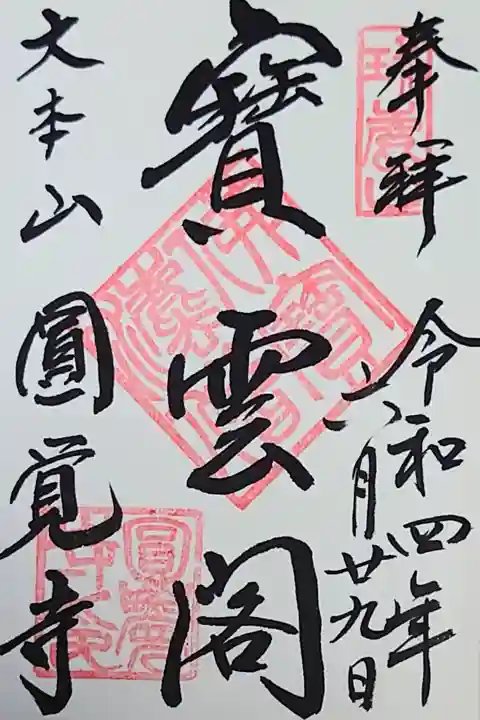 奉拝 令和四年
六月廿九日
寶雲閣
大本山 圓覚寺